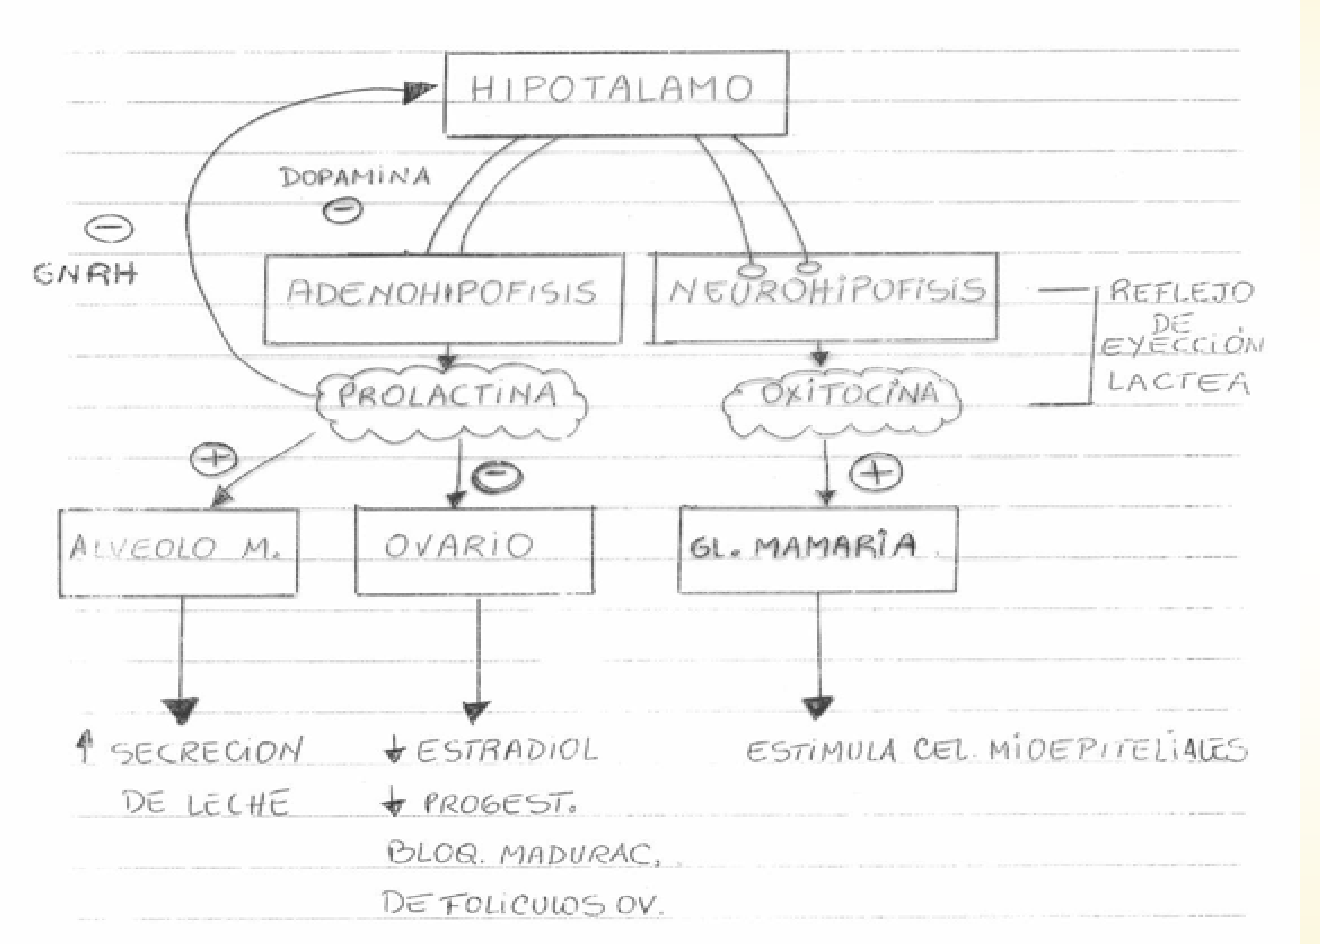 HIPOTALAMO
DOPAMINA
-
-
GNRH
ADENOHIPOFISIS
NEUROHIPOFISIS
REFLEJO
DE
EYECCIÓN
LACTEA
PROLACTINA
OXITOCINA
+
-
+
ALVEOLO M.
OVARIO
GL. MAMARIA.
↑ SECRECION
DE LECHE
↓ ESTRADIOL
↓ PROGEST.
BLOQ. MADURAC.
DE FOLICULOS OV.
ESTIMULA CEL. MIOEPITELIALES